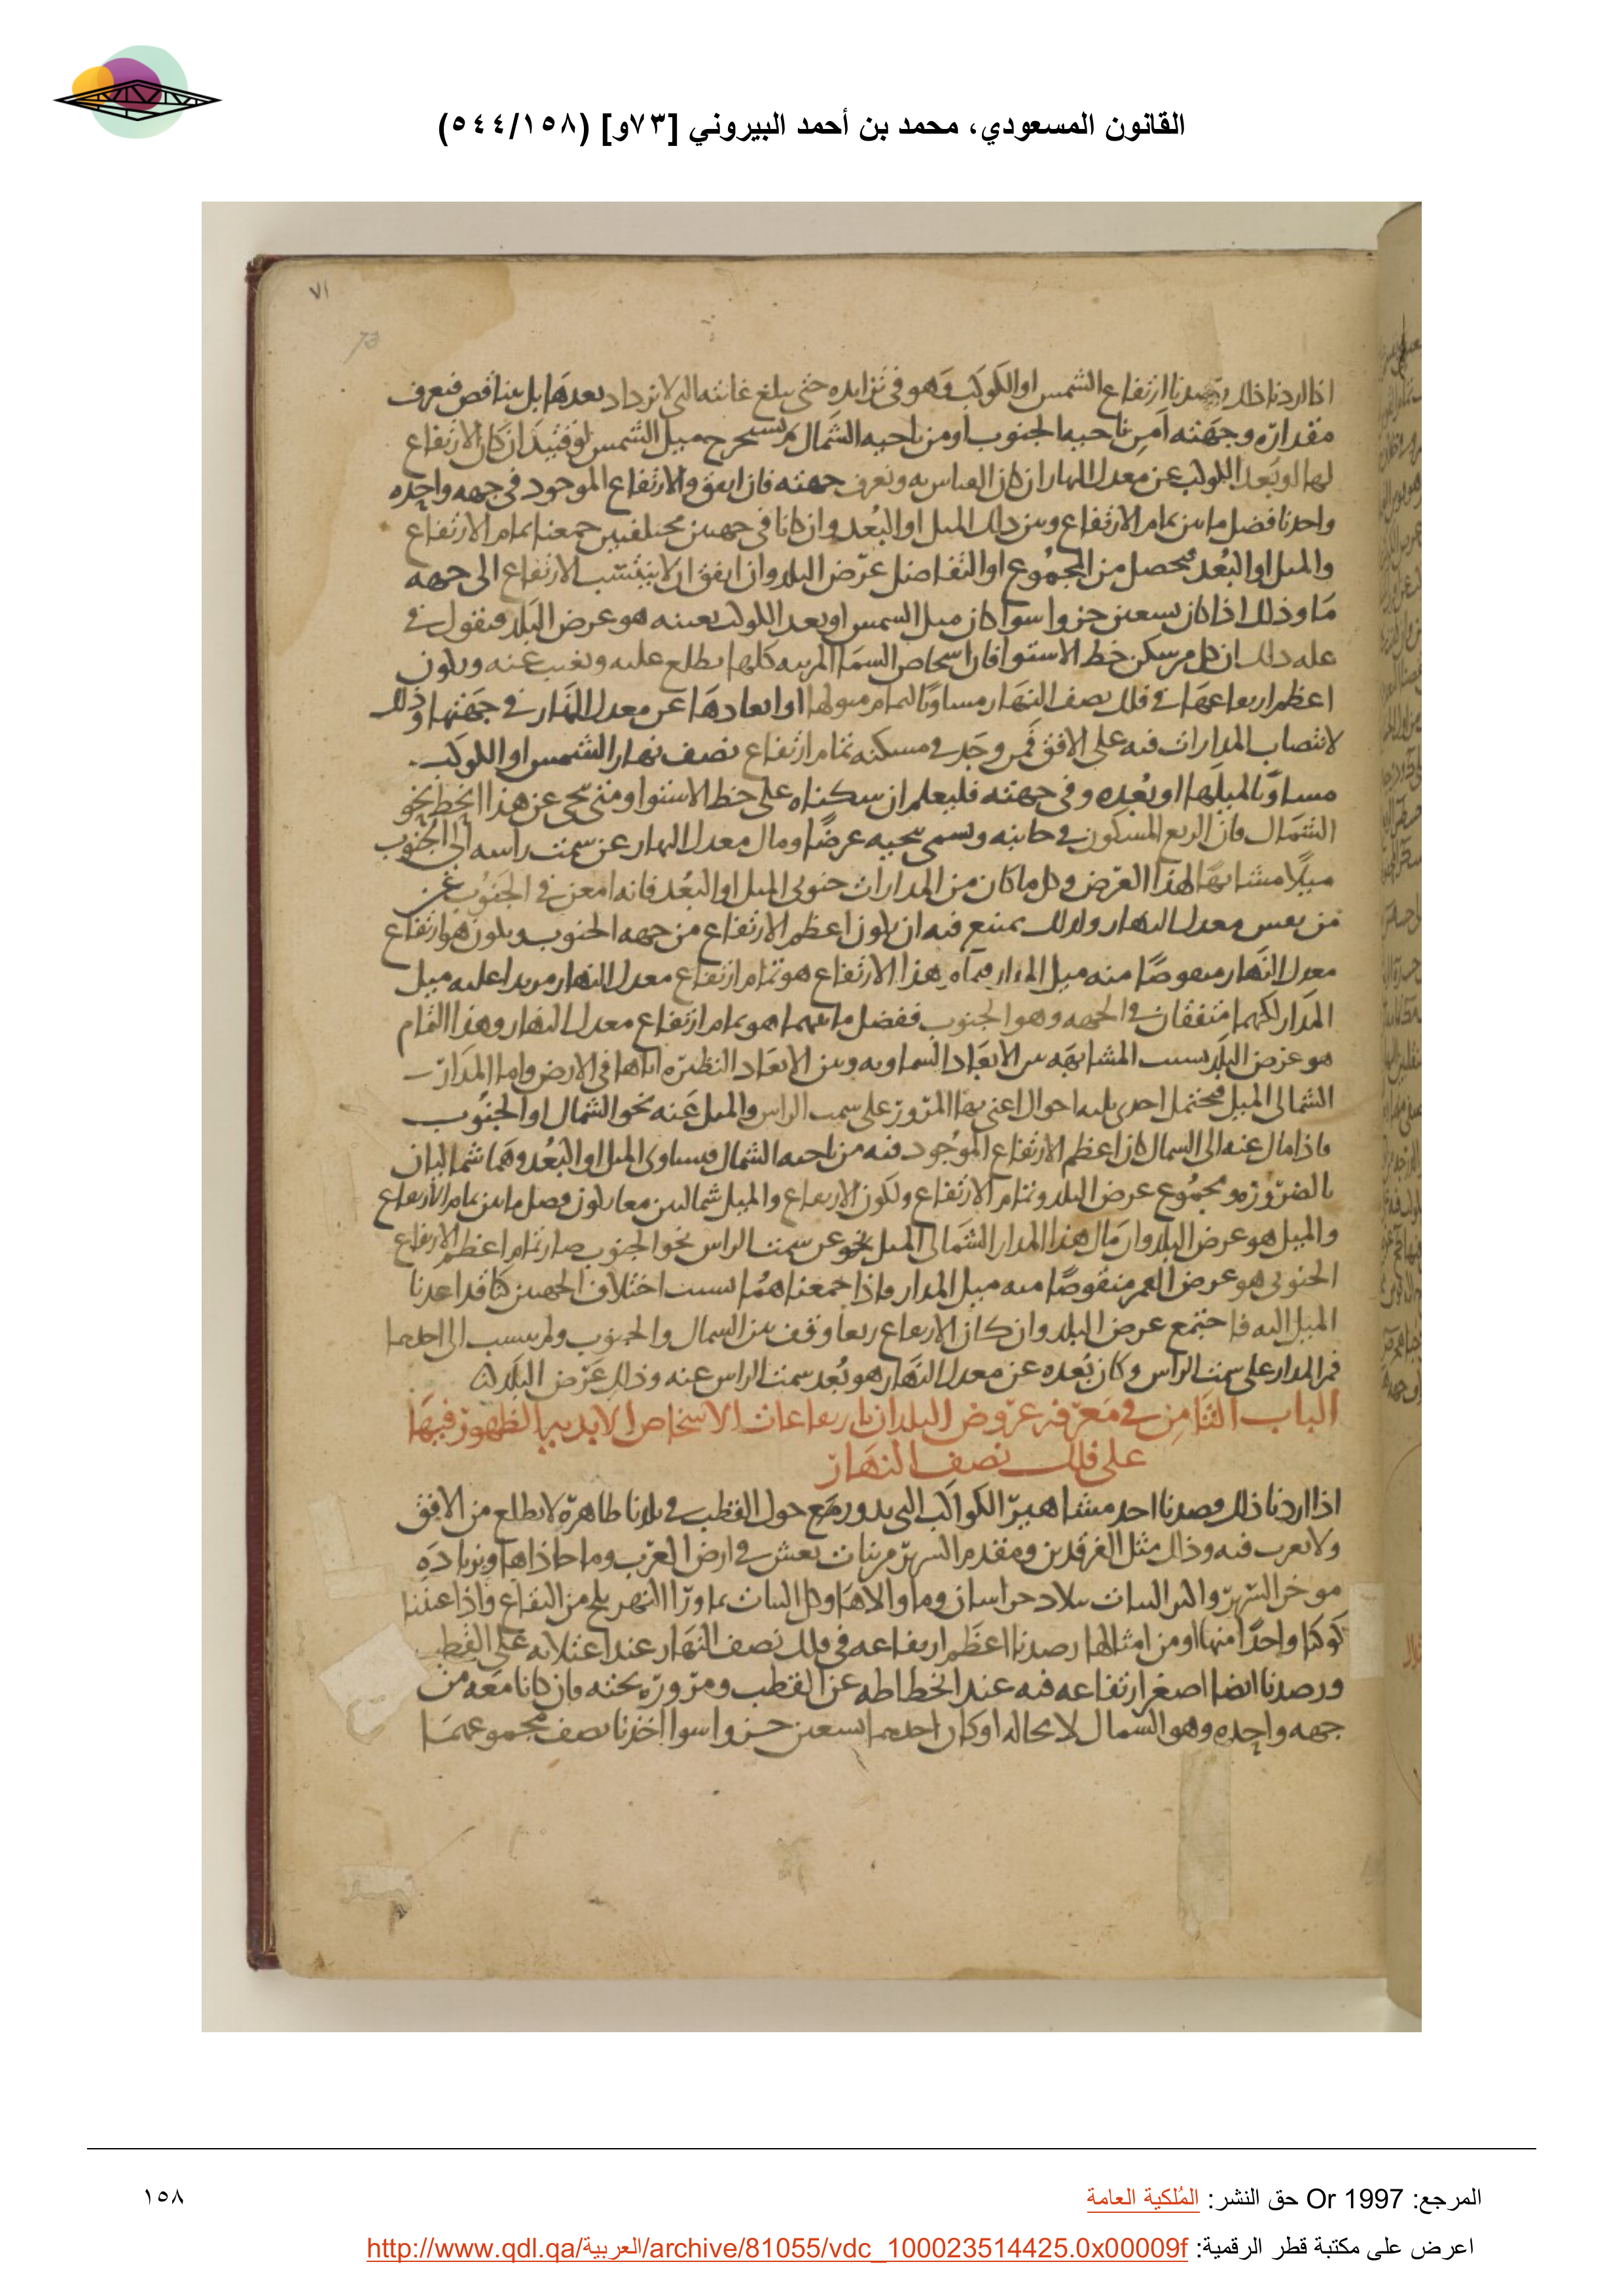 القانون المسعودي، محمد بن أحمد البيروني [٧٣و] (٥٤٤/١٥٨)
٧١
73
اذا اردنا ذلك رصدنا ارتفاع الشمس او الكوكب وهو فى تزايده حتى يبلغ غايته التى لا تزداد بعدها بل يتناقص فنعرف
مقداره وجهته أمن ناحيه الجنوب او من ناحيه الشمال ثم نستخرج ميل الشمس لوقتئذ ان كان الارتفاع
لها او بعد الكوكب عن معدل النهار ان كان القياس به ونعرف جهته فان اتفق والارتفاع الموجود فى جهه واحده
واخذنا فضل ما بين تمام الارتفاع وبين ذلك الميل او البُعد وان كانا فى جهتين مختلفتين جمعنا تمام الارتفاع
والميل او البُعد فيحصل من المجموع او التفاضل عرض البلد وان اتفق ان لا ينتسب الارتفاع الى جهه
ما وذلك اذا كان تسعين جزوا سوا كان ميل الشمس او بعد الكوكب بعينه هو عرض البلد فنقول فى
عله ذلك ان كل من سكن خط الاستوا فان اشخاص السما المرييه كلها يطلع عليه وتغيب عنه ويكون
اعظم ارتفاعها فى فلك نصف النهار مساويًا لتمام ميولها او ابعادها عن معدل النهار فى جهتها وذلك
لانتصاب المدارات فيه على الافق فمن وجد فى مسكنه تمام ارتفاع نصف نهار الشمس او الكوكب
مساويًا لميلها او بُعده وفى جهته فليعلم ان سكناه على خط الاستوا ومتى تنحى عن هذا الخط نحو
الشمال فان الربع المسكون فى جانبه ويسمى تنحيه عرضًا ومال معدل النهار عن سمت راسه الى الجنوب
ميلًا مشابهًا لهذا العرض وكل ما كان من المدارات جنوبى الميل او البُعد فانه امعن فى الجنوب عن
من نفس معدل النهار ولذلك يمتنع فيه ان يكون اعظم الارتفاع من جهه الجنوب ويكون هو ارتفاع
معدل النهار منقوصًا منه ميل المدار فتمام هذا الارتفاع هو تمام ارتفاع معدل النهار مزيدا عليه ميل
المدار لكنهما متفقان فى الجهه وهو الجنوب ففضل ما بينهما هو تمام ارتفاع معدل النهار وهذا التمام
هو عرض البلد بسبب المشابهه بين الابعاد السماويه وبين الابعاد النظيره اياها فى الارض واما المدار
الشمالى الميل فيحتمل احدى ثلثه احوال اعنى بها المرور على سمت الراس والميل عنه نحو الشمال او الجنوب
فاذا مال عنه الى الشمال كان اعظم الارتفاع الموجود فيه من ناحيه الشمال فيساوى الميل او البُعد وهما شماليان
بالضروره مجموع عرض البلد وتمام الارتفاع ولكون الارتفاع والميل شماليين معا يكون فضل ما بين تمام الارتفاع
والميل هو عرض البلد وان مال هذا المدار الشمالى الميل عن سمت الراس نحو الجنوب صار تمام اعظم الارتفاع
الجنوبى هو عرض منقوصًا منه ميل المدار واذا جمعناهما بسبب اختلاف الجهتين كنا قد اعدنا
الميل اليه فاجتمع عرض البلد وان كان الارتفاع ربعا وقف بين الشمال والجنوب ولم ينسب الى احدهما
فمر المدار على سمت الراس وكان بُعده عن معدل النهار هو بُعد سمت الراس عنه وذلك عرض البلد
الباب الثامن فى معرفه عروض البلدان بارتفاعات الاشخاص الابديه الظهور فيها
على فلك نصف النهار
اذا اردنا ذلك قصدنا احد مشاهير الكواكب التى يدور حول القطب فى بلدنا ظاهرة لا يطلع من الافق
ولا يغرب فيه وذلك مثل الفرقدين ومقدم السرير من بنات نعش فى ارض العرب وما حاذاها وبزياده
موخر السرير واكبر البنات ببلاد خراسان وما والاها وكل البنات بما ورآ النهر بلخ من البقاع فاذا عيّنا
كوكبا واحدًا منها او من امثالها رصدنا اعظم ارتفاعه فى فلك نصف النهار عند اعتلائه على القطب
ورصدنا ايضا اصغر ارتفاعه فيه عند انحطاطه عن القطب ومروره تحته فان كانا معه من
جهه واحده وهو الشمال لا محاله او كان احدهما تسعين جزوا سوا اخذنا نصف مجموعهما
المرجع: Or 1997 حق النشر: المُلكية العامة
١٥٨
اعرض على مكتبة قطر الرقمية: http://www.qdl.qa/العربية/archive/81055/vdc_100023514425.0x00009f